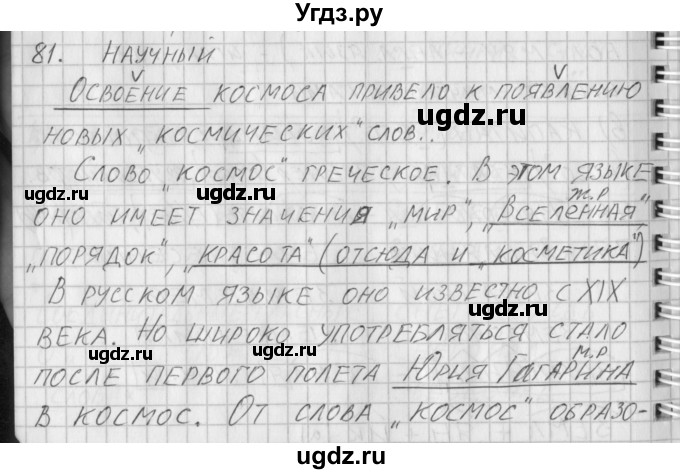 Угдз.ру
81. Научный
Освоение космоса привело к появлению
новых „космических" слов..
Слово „космос" греческое. В этом языке
ж.р
оно имеет значения „мир", „Вселенная",
„порядок", „красота" (отсюда и „косметика")
В русском языке оно известно с XIX
века. Но широко употребляться стало
м.р
после первого полета Юрия Гагарина
в космос. От слова „космос" образо-
ugdz.ru
ugdz.ru
ugdz.ru
ugdz.ru
ugdz.ru
ugdz.ru
ugdz.ru
ugdz.ru
ugdz.ru
ugdz.ru